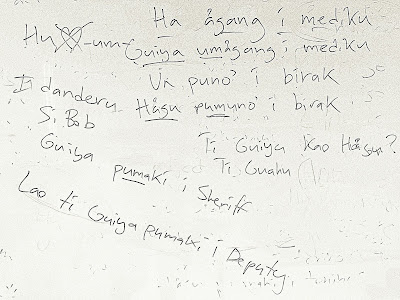 Ha ågang i mediku
Hu -um-
Guiya umågang i mediku
Un puno' i birak
I danderu Hågu pumuno' i birak
Si Bob
Ti Guiya kao Hågu?
Guiya pumaki i Sheriff
Ti Guahu
Lao ti Guiya pumaki i Deputy